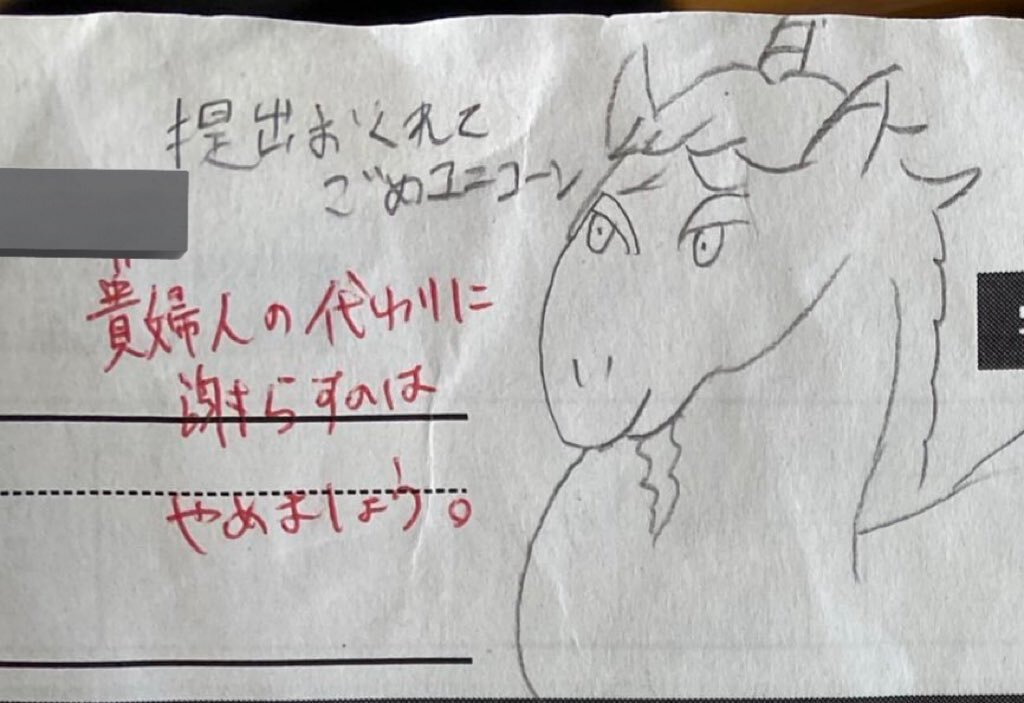 提出おくれて
ごめユニコーン
貴婦人の代わりに
謝らすのは
やめましょう。